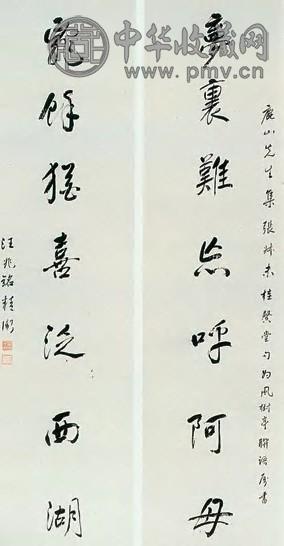 中华收藏网
www.pmv.cn
山先生集張叔未桂馨堂句為風樹亭聯語屬書
夢裏難忘呼阿母
餘猶喜西湖
汪兆銘精衛